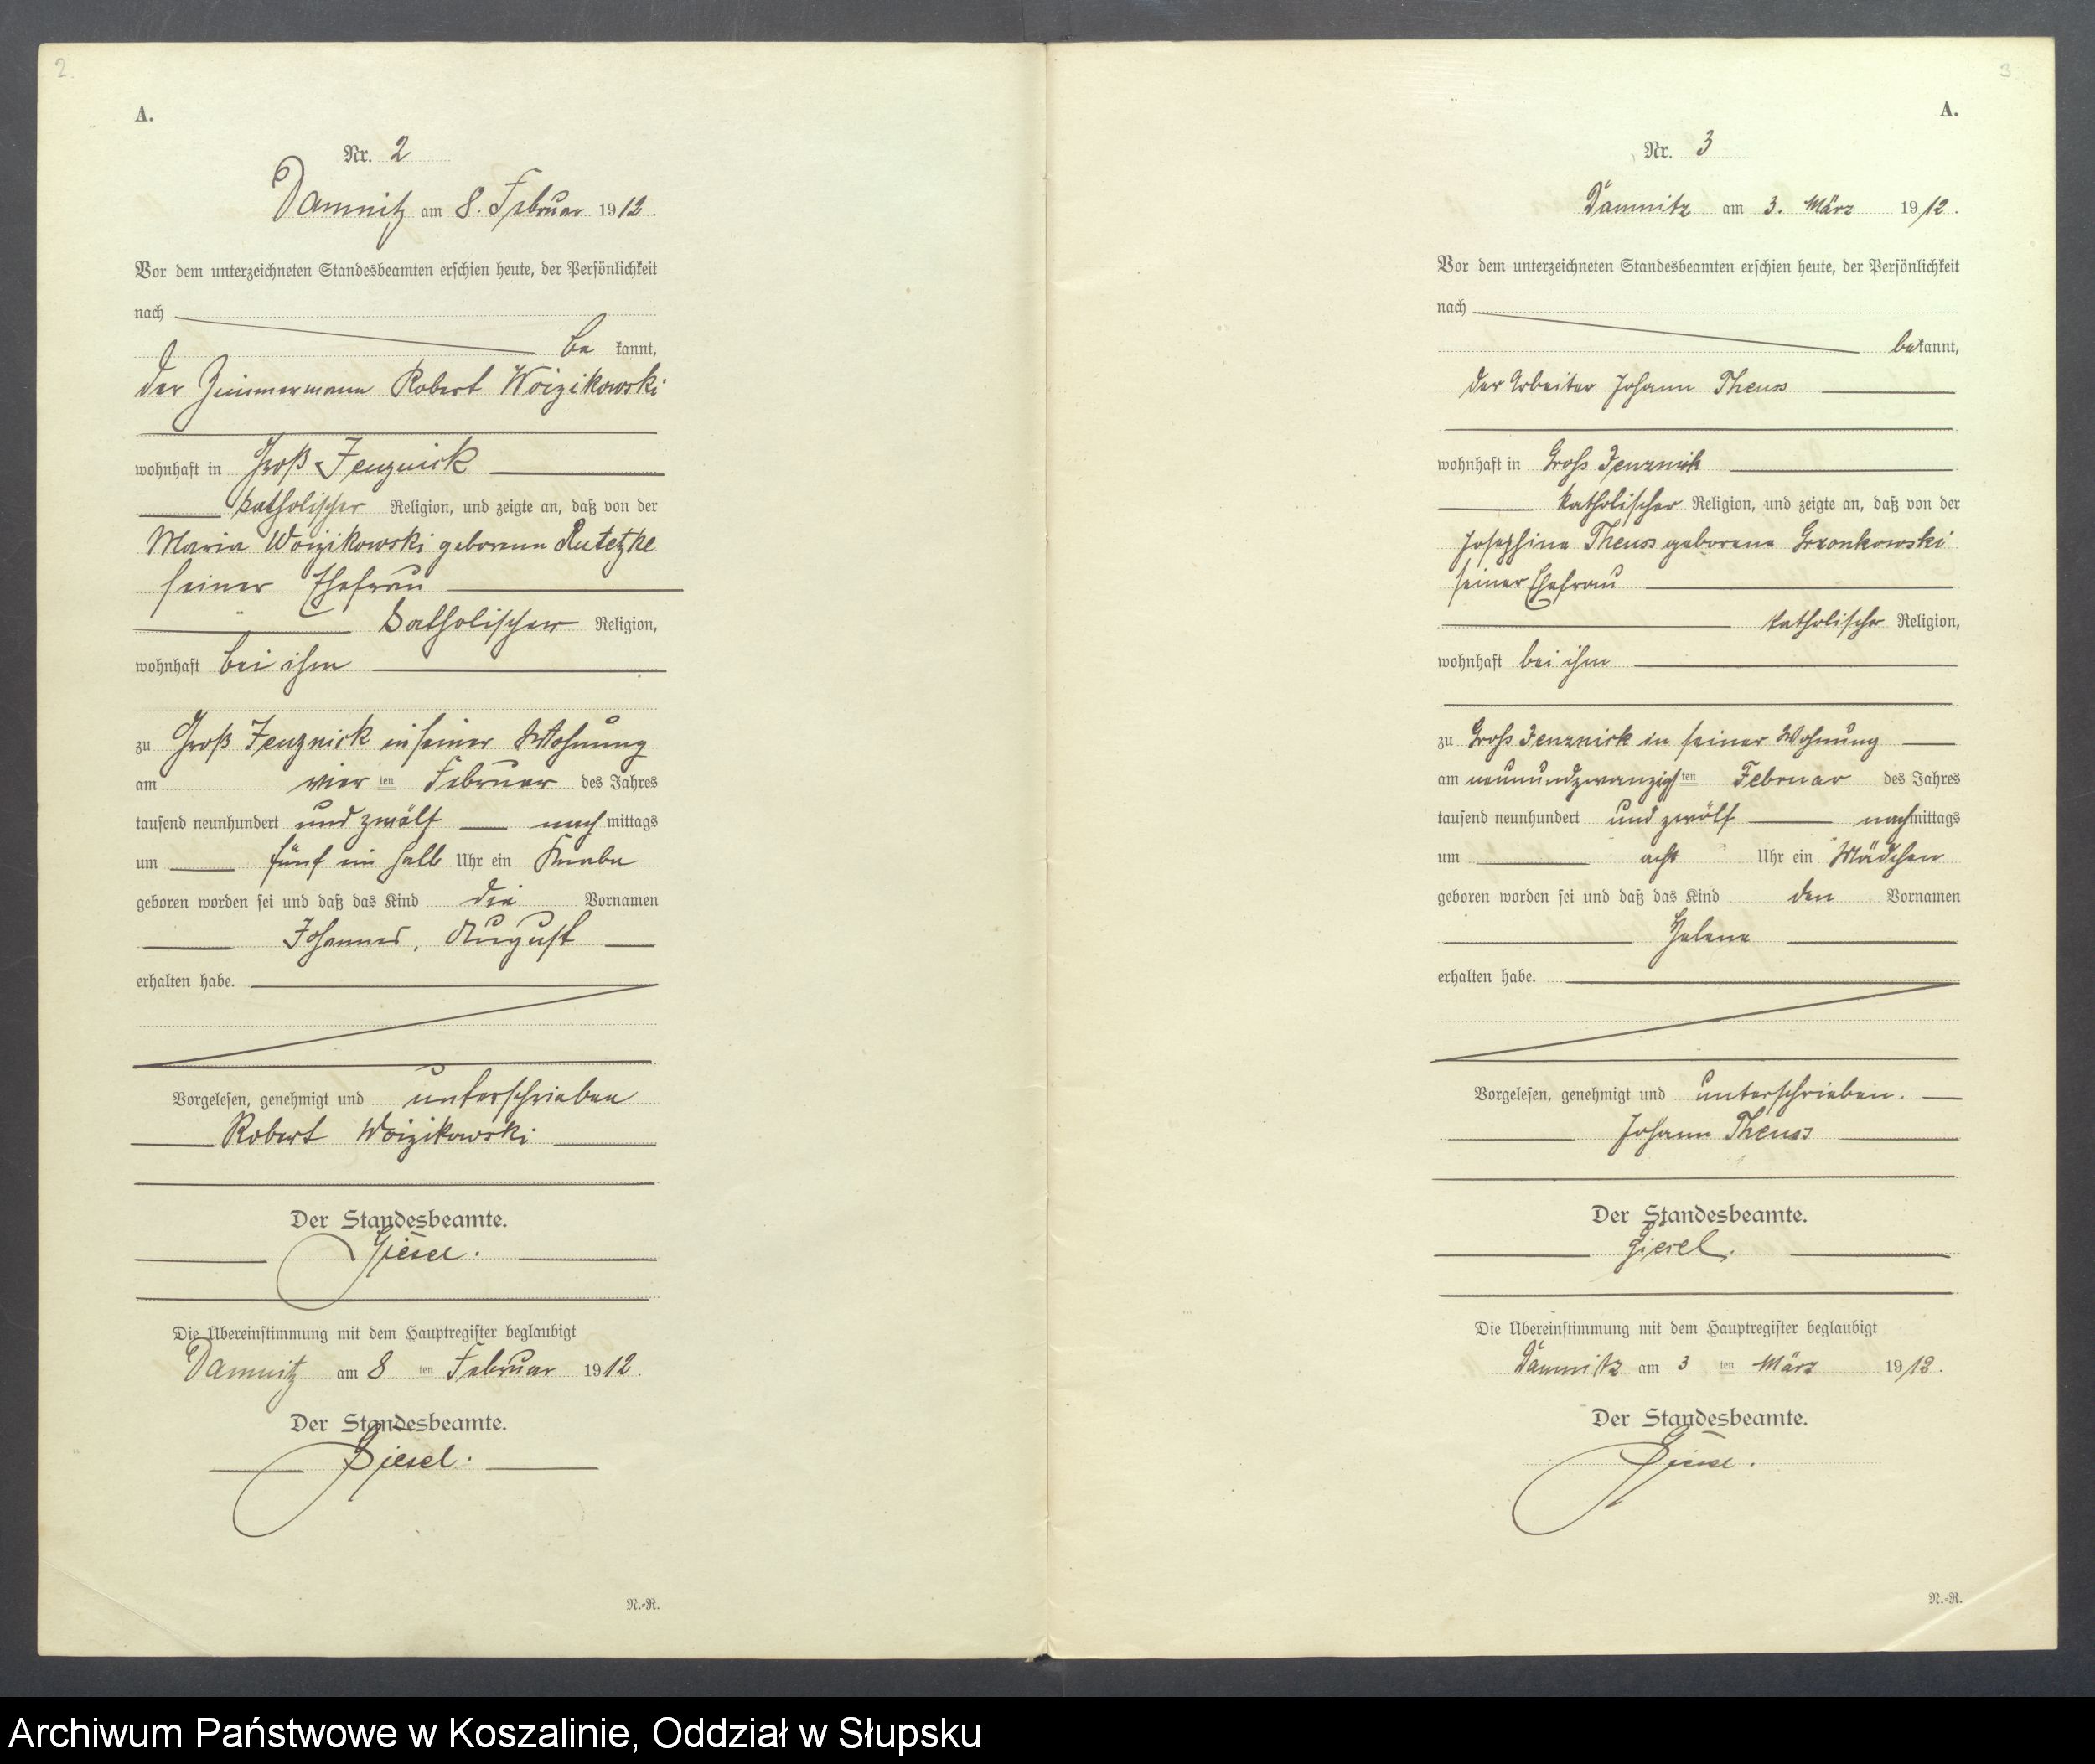 2.
A.
Nr. 2
Damnitz am 8. Februar 1912.
Vor dem unterzeichneten Standesbeamten erschien heute, der Persönlichkeit
nach
be kannt,
der Zimmermann Robert Woizikowski
wohnhaft in Groß Jenznick
katholischer Religion, und zeigte an, daß von der
Maria Woizikowski geborene Rutetzke
seiner Ehefrau
katholischer Religion,
wohnhaft bei ihm
zu Groß Jenznick in seiner Wohnung
am vier ten Februar des Jahres
tausend neunhundert und zwölf nach mittags
um fünf ein halb Uhr ein Knabe
geboren worden sei und daß das Kind die Vornamen
Johannes, August
erhalten habe.
Vorgelesen, genehmigt und unterschrieben
Robert Woizikowski
Der Standesbeamte.
Giesel.
Die Übereinstimmung mit dem Hauptregister beglaubigt
Damnitz am 8 ten Februar 1912.
Der Standesbeamte.
Giesel.
N.-R.
3
A.
Nr. 3
Damnitz am 3. März 1912.
Vor dem unterzeichneten Standesbeamten erschien heute, der Persönlichkeit
nach
bekannt,
der Arbeiter Johann Theuss
wohnhaft in Gross Jenznick
katholischer Religion, und zeigte an, daß von der
Josephine Theuss geborene Gronkowski
seiner Ehefrau
katholischer Religion,
wohnhaft bei ihm
zu Gross Jenznick in seiner Wohnung
am neunundzwanzigsten Februar des Jahres
tausend neunhundert und zwölf nachmittags
um acht Uhr ein Mädchen
geboren worden sei und daß das Kind den Vornamen
Helene
erhalten habe.
Vorgelesen, genehmigt und unterschrieben.
Johann Theuss
Der Standesbeamte.
Giesel.
Die Übereinstimmung mit dem Hauptregister beglaubigt
Damnitz am 3 ten März 1912.
Der Standesbeamte.
Giesel.
N.-R.
Archiwum Państwowe w Koszalinie, Oddział w Słupsku